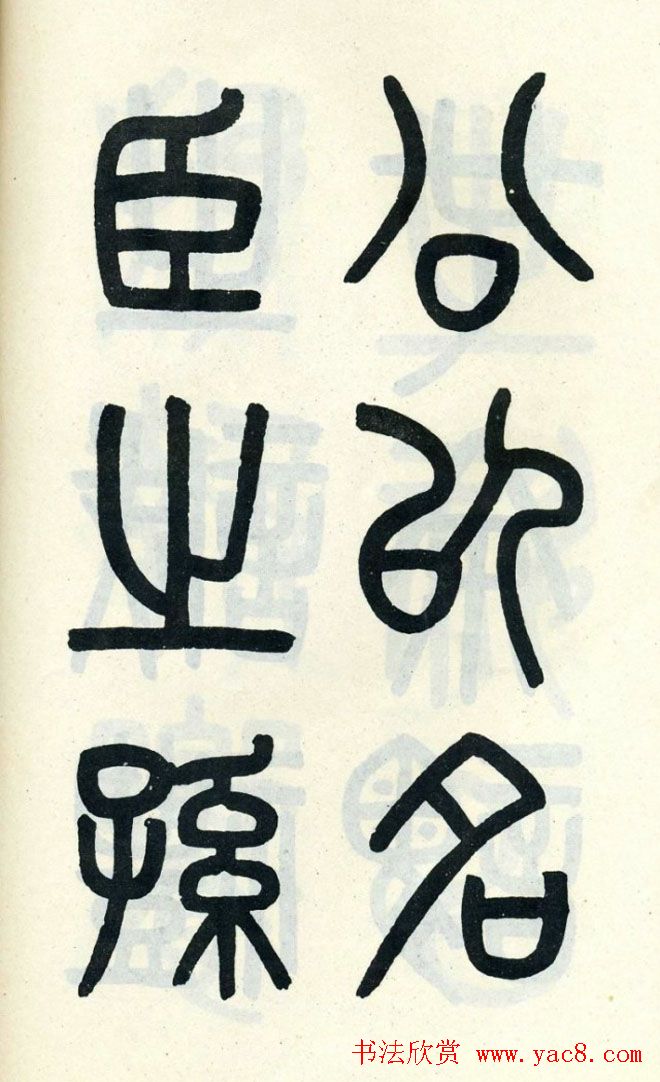 公以名
臣之孫
书法欣赏 www.yac8.com